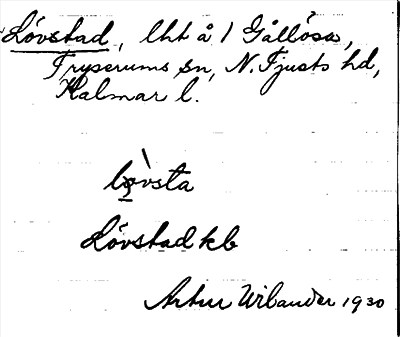 Lövstad, lht å 1 Gållösa,
Tryserums sn, N. Tjusts hd,
Kalmar l.
lo̤vsta
Lövstad kb
Artur Wilander 1930